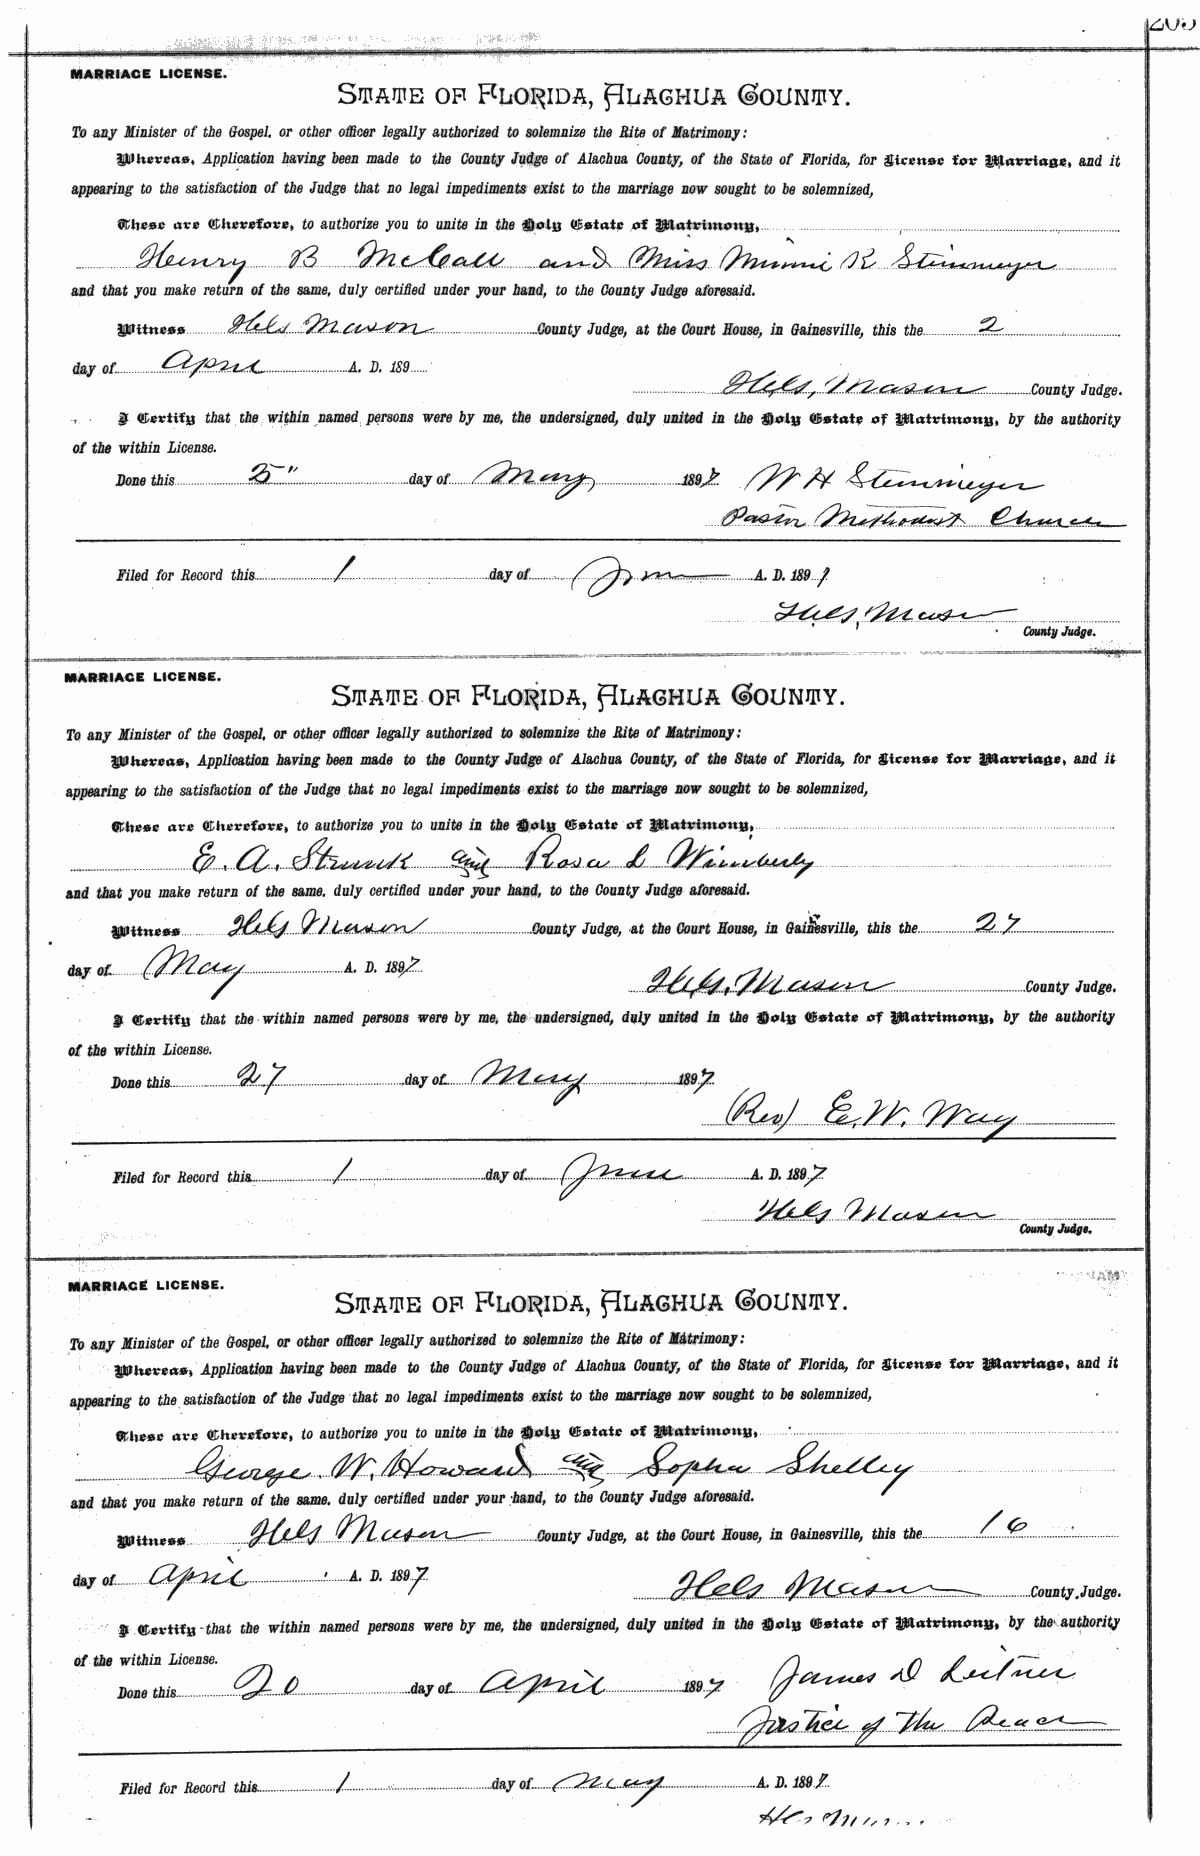 MARRIAGE LICENSE.
STATE OF FLORIDA, ALACHUA COUNTY.
To any Minister of the Gospel, or other officer legally authorized to solemnize the Rite of Matrimony:
Whereas, Application having been made to the County Judge of Alachua County, of the State of Florida, for License for Marriage, and it
appearing to the satisfaction of the Judge that no legal impediments exist to the marriage now sought to be solemnized,
These are Therefore, to authorize you to unite in the Holy Estate of Matrimony,
Henry B McCall and Miss Minnie K Steinmeyer
and that you make return of the same, duly certified under your hand, to the County Judge aforesaid.
Witness Hels Mason County Judge, at the Court House, in Gainesville, this the 2
day of April A. D. 189
Hels, Mason County Judge.
I Certify that the within named persons were by me, the undersigned, duly united in the Holy Estate of Matrimony, by the authority
of the within License.
Done this 5" day of May 1897 W H Steinmeyer
Pastor Methodist Church
Filed for Record this 1 day of June A. D. 1897
Hels, Mason
County Judge.
MARRIAGE LICENSE.
STATE OF FLORIDA, ALACHUA COUNTY.
To any Minister of the Gospel, or other officer legally authorized to solemnize the Rite of Matrimony:
Whereas, Application having been made to the County Judge of Alachua County, of the State of Florida, for License for Marriage, and it
appearing to the satisfaction of the Judge that no legal impediments exist to the marriage now sought to be solemnized,
These are Therefore, to authorize you to unite in the Holy Estate of Matrimony,
E. A. Strunk and Rosa L Wimberly
and that you make return of the same, duly certified under your hand, to the County Judge aforesaid.
Witness Hels Mason County Judge, at the Court House, in Gainesville, this the 27
day of May A. D. 1897
Hels, Mason County Judge.
I Certify that the within named persons were by me, the undersigned, duly united in the Holy Estate of Matrimony, by the authority
of the within License.
Done this 27 day of May 1897
(Rev) E. W. Way
Filed for Record this 1 day of June A. D. 1897
Hels Mason
County Judge.
MARRIAGE LICENSE.
STATE OF FLORIDA, ALACHUA COUNTY.
To any Minister of the Gospel, or other officer legally authorized to solemnize the Rite of Matrimony:
Whereas, Application having been made to the County Judge of Alachua County, of the State of Florida, for License for Marriage, and it
appearing to the satisfaction of the Judge that no legal impediments exist to the marriage now sought to be solemnized,
These are Therefore, to authorize you to unite in the Holy Estate of Matrimony,
George W. Howard and Sopha Shelley
and that you make return of the same, duly certified under your hand, to the County Judge aforesaid.
Witness Hels Mason County Judge, at the Court House, in Gainesville, this the 16
day of April A. D. 1897
Hels Mason County Judge.
I Certify that the within named persons were by me, the undersigned, duly united in the Holy Estate of Matrimony, by the authority
of the within License.
Done this 20 day of April 1897 James D Leitner
Justice of the Peace
Filed for Record this 1 day of May A. D. 1897